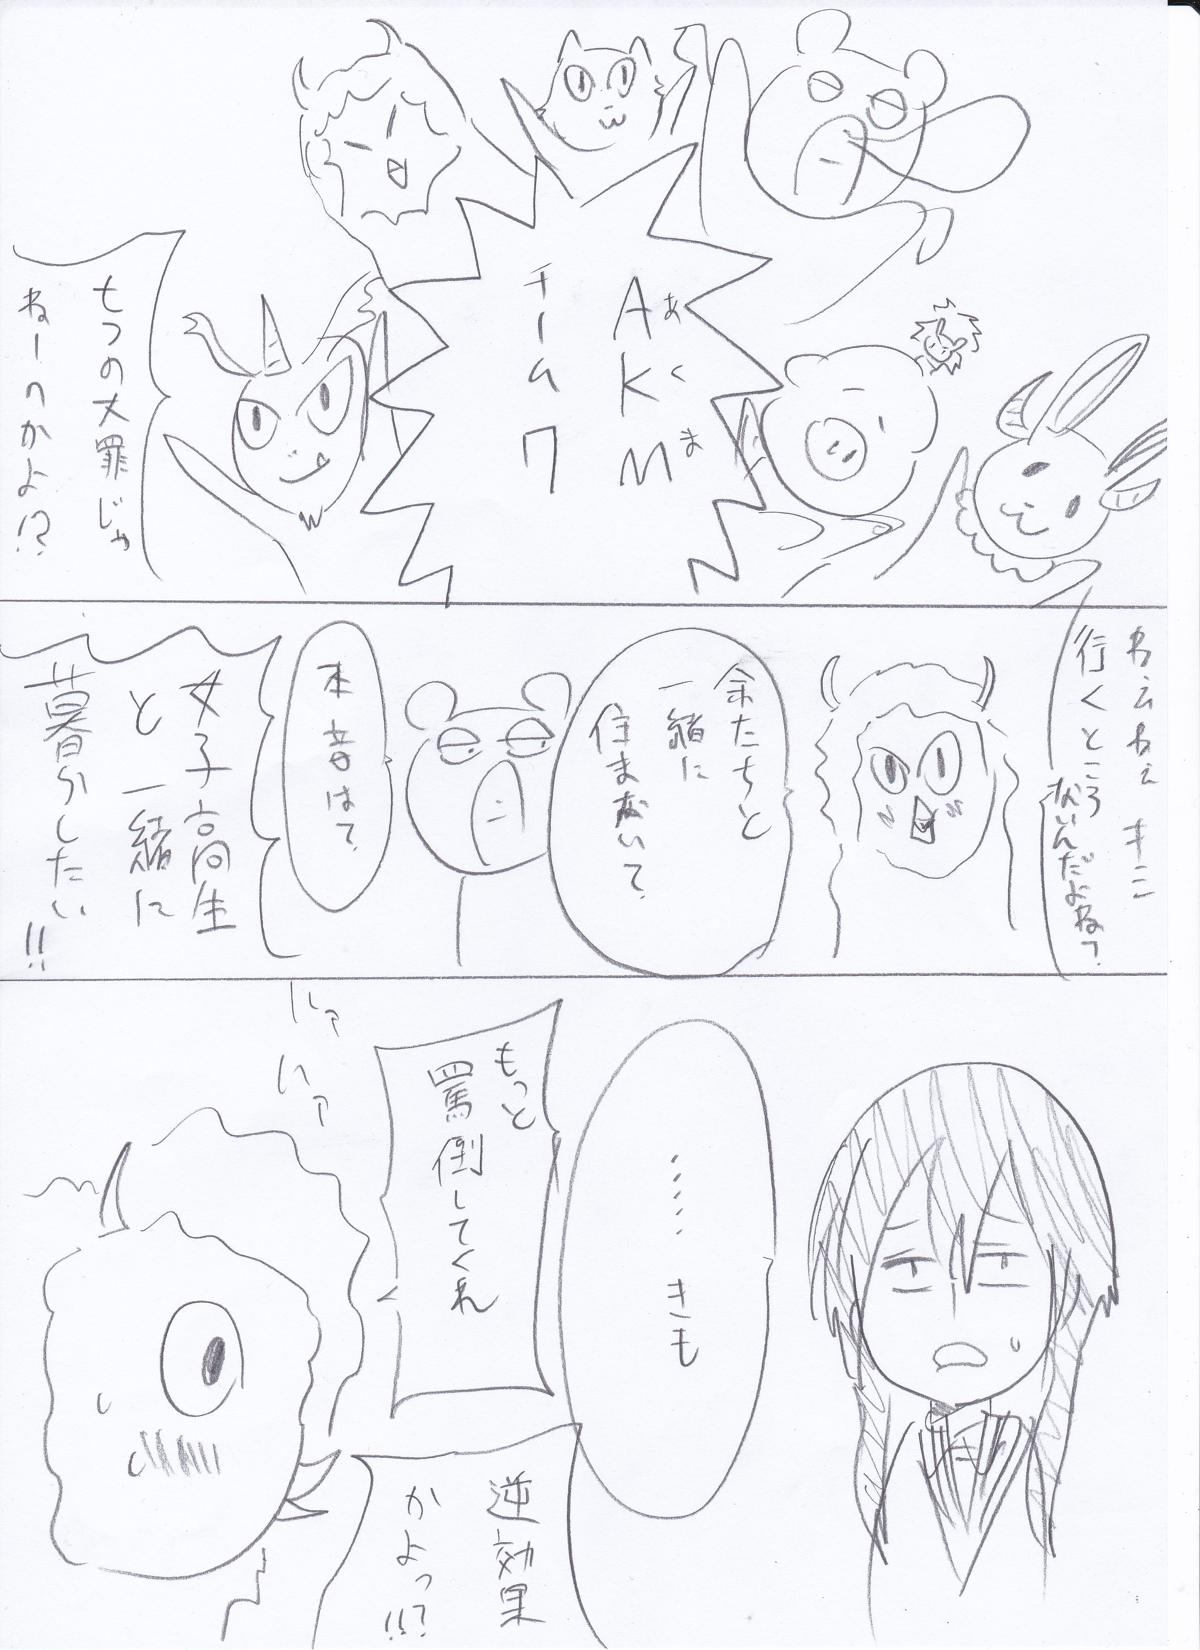 AKM
ぁくま
チーム7
七つの大罪じゃ
ねーのかよ!?
ねぇねぇ キミ
行くところ
ないんだよね?
余たちと
一緒に
住まないて?
本音は?
女子高生
と一緒に
暮らしたい!!
……きも
もっと
罵倒してくれ
ハァ
ハァ
逆効果
かよっ!!?